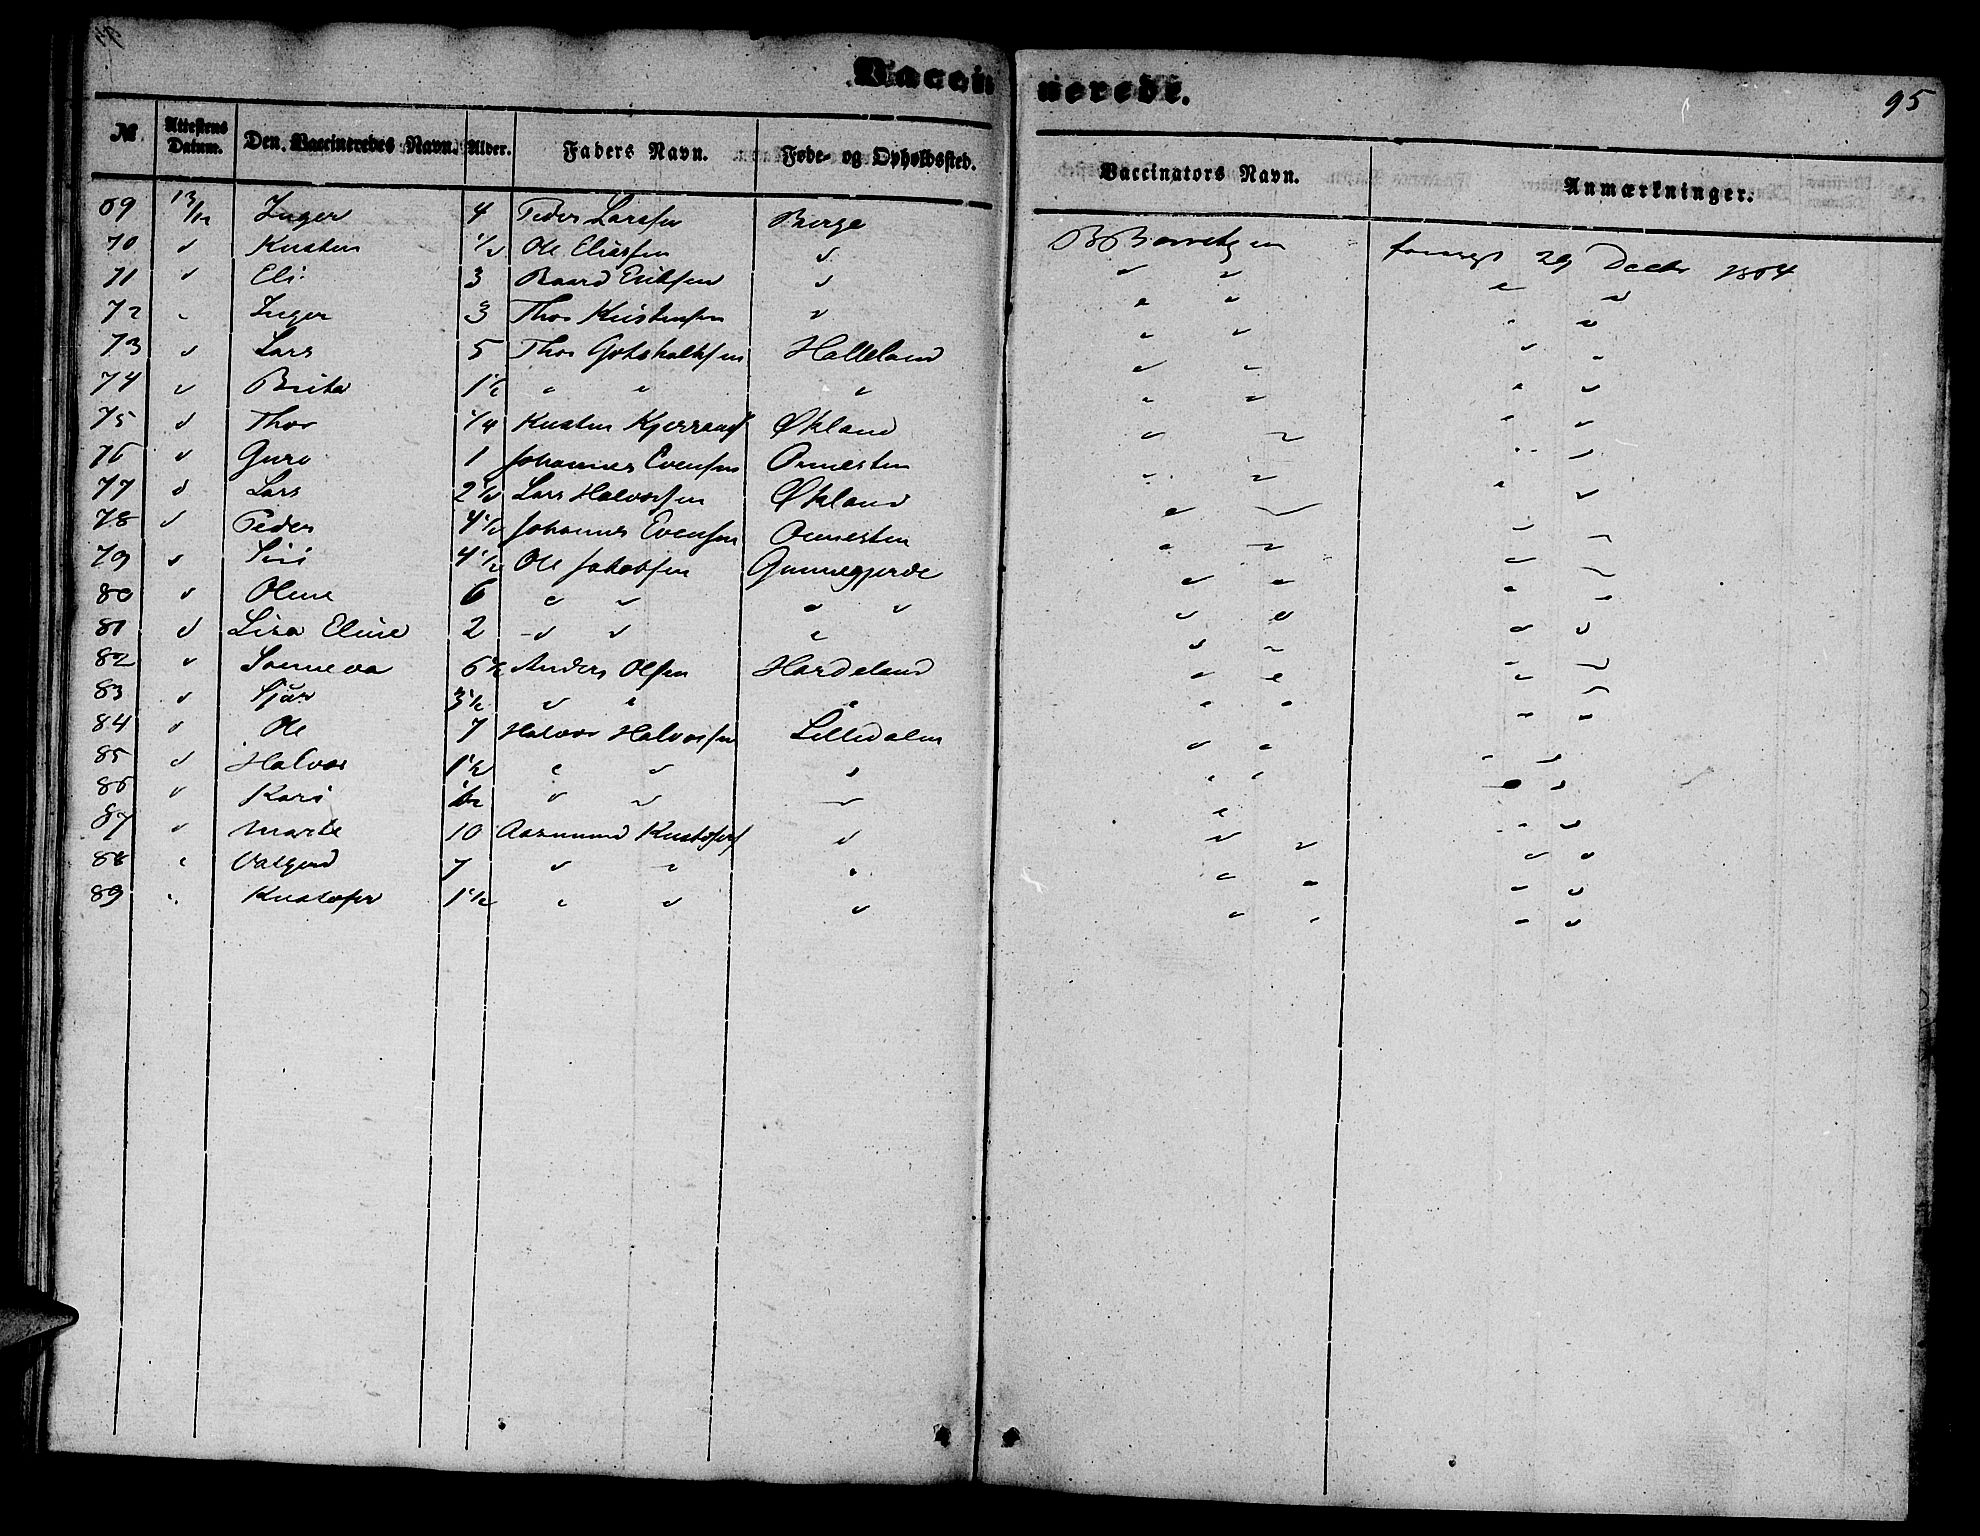 Vaccinerede.
95
№ Attestens Datum. Den Vaccineredes Navn. Alder. Faders Navn. Føde- og Opholdssted. Vaccinators Navn. Anmærkninger.
69 13/12 Inger 4 Peder Larssen Berge 29 Decbr 1864
70 " Kristen 1/2 Ole Eliassen "
71 " Eli 3 Baard Eriksen " " " " "
72 " Inger 3 Thor Kristensen " " " " "
73 " Lars 5 Thor Gotskalksen Halleland " " " "
74 " Brita 1 1/2 " " " " " " "
75 " Thor 1/4 Kristen Økland " " " "
76 " Guro 1 Johannes Evensen Ormesten " " " "
77 " Lars 2 1/2 Lars Halvorsen Økland " " " "
78 " Peder 4 1/2 Johannes Evensen Ormesten " " " "
79 " Siri 4 1/2 Ole Jakobsen Gunnegjerde " " " "
80 " Oline 6 " " " " " " " "
81 " Lisa Eline 2 " " " " " " "
82 " Sonneva 6 1/2 Anders Olsen Hardeland " " " "
83 " 3 1/2 " " " " " " "
84 " Ole 7 Halvor Halvorsen Lilledalen " " " "
85 " Halvor 1 1/2 " " " " " " "
86 " Kari 1/2 " " " " " "
87 " Marte 10 Aasmund " " " " "
88 " Valgjerd 7 " " " " " " "
89 " Kristofer 1 1/2 " " " " " " "